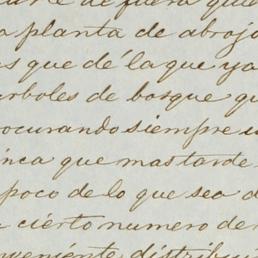 de fuera que
planta de abrojo
que dé la que ya
arboles de bosque
procurando siempre
que mas tarde
poco de lo que sea
cierto numero de
distribui